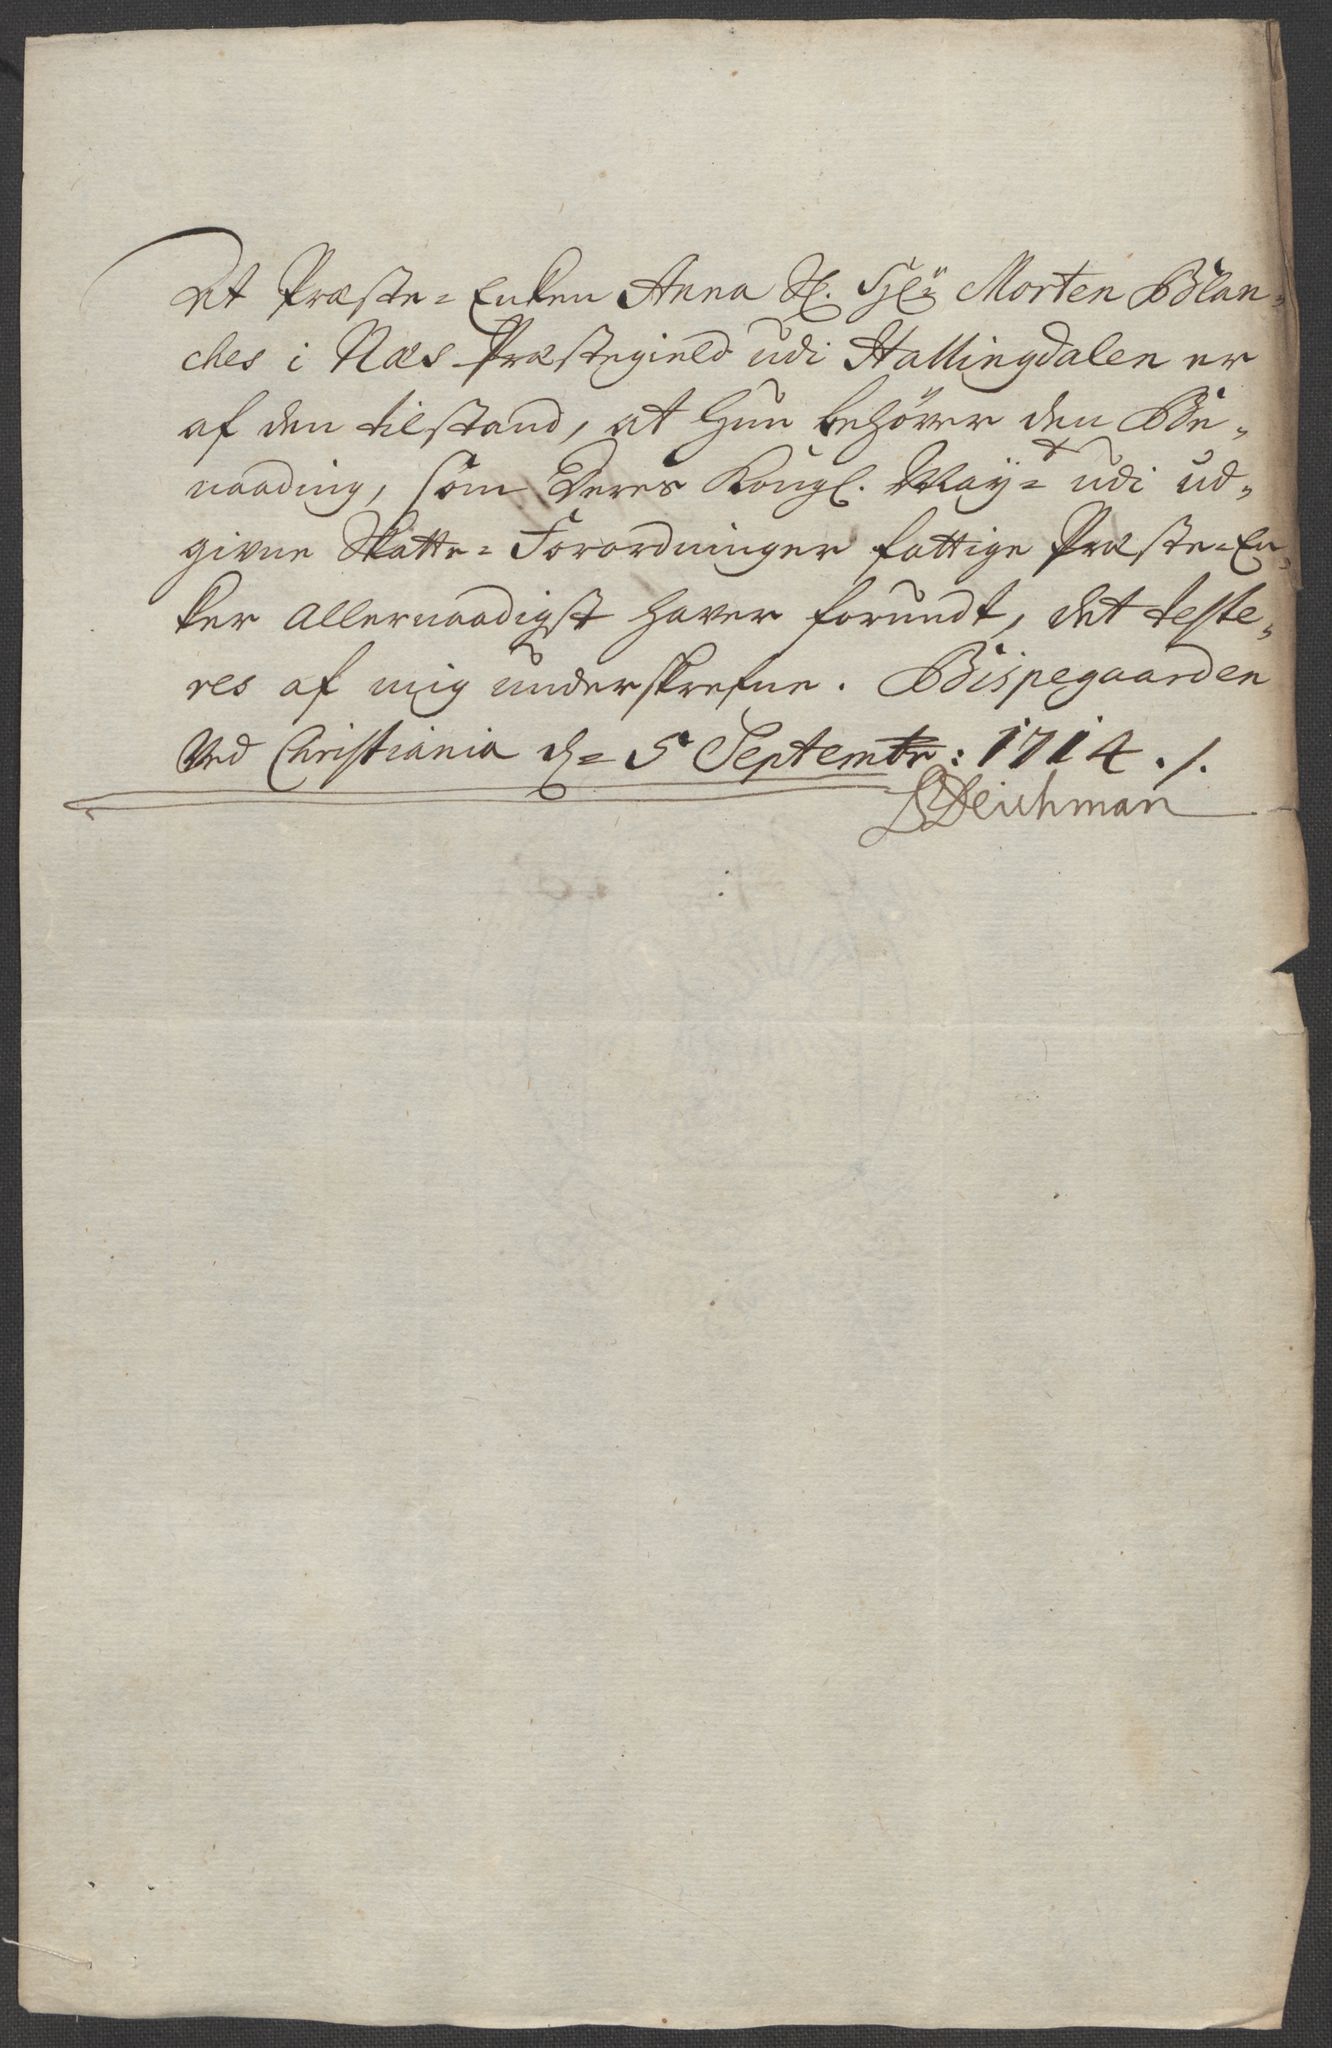 At Præste-Enken Anna Sl. Hr. Morten Blan-
ches i Næs Præstegield udi Hallingdalen er
af den tilstand, at hun behøver den Be-
naading, som Deres Kongl. May-t udi ud-
givne Skatte-Forordninger fattige Præste-En-
ker allernaadigst haver forundt, det teste-
res af mig underskrefne. Bispegaarden
Ved Christiania d. 5 Septembr: 1714 ./.
BDeichman